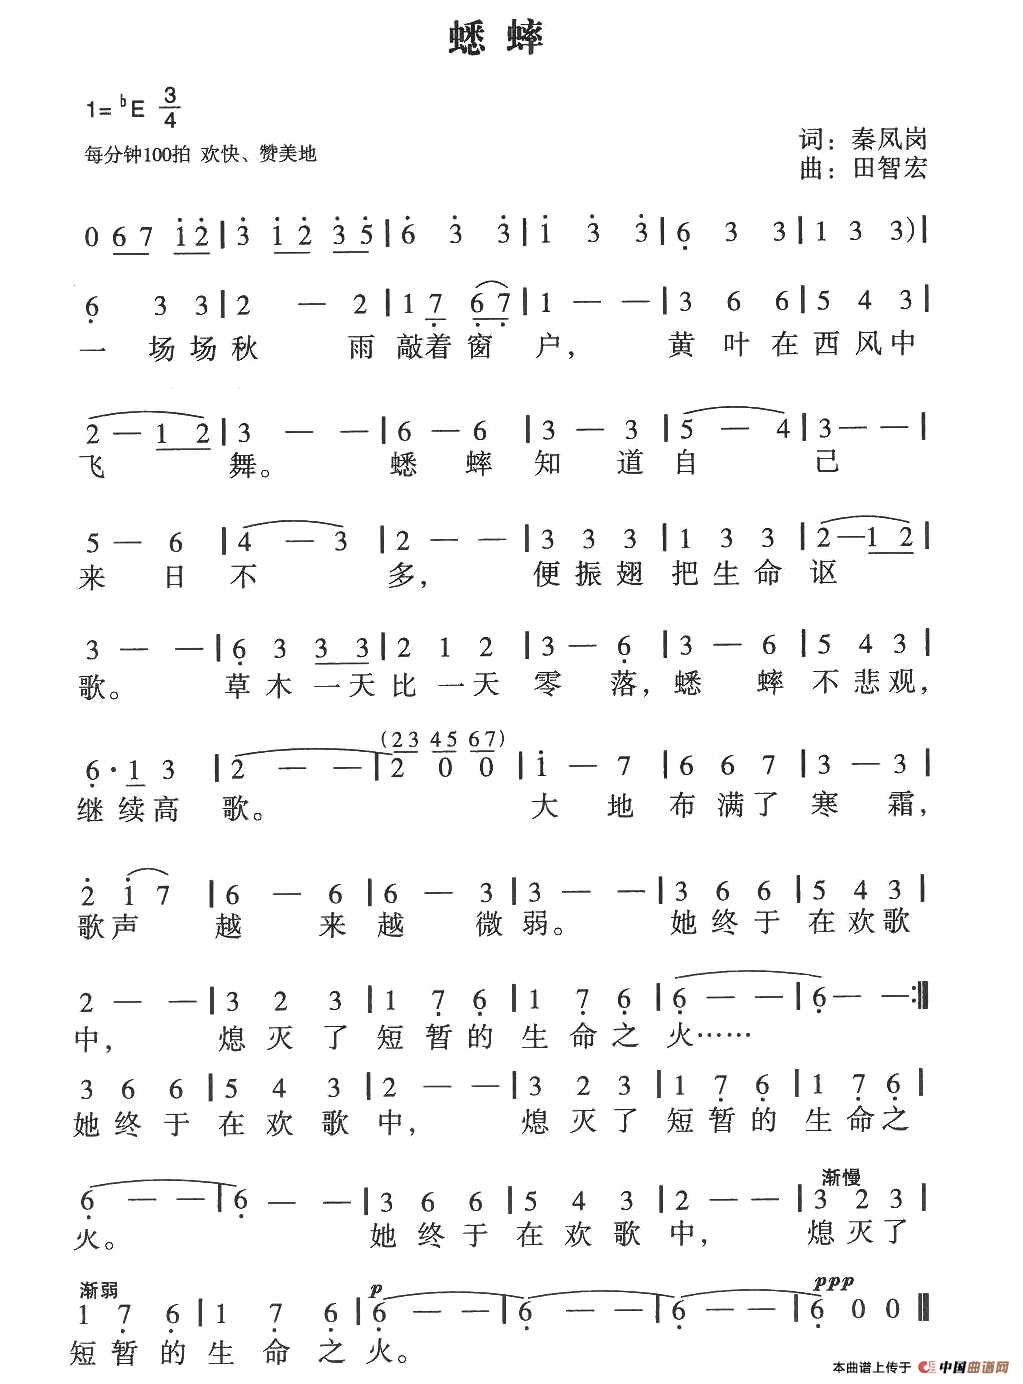 蟋蟀
1= ♭E 3/4
每分钟100拍 欢快、赞美地
词：秦凤岗
曲：田智宏
0 6 7 1̇ 2̇ | 3̇ 1̇ 2̇ 3̇ 5̇ | 6̇ 3̇ 3̇ | 1̇ 3̇ 3̇ | 6̣ 3 3 | 1 3 3) |
6̣ 3 3 | 2 — 2 | 1 7̣ 6̣ 7̣ | 1 — — | 3 6 6 | 5 4 3 |
一 场 场 秋 雨 敲着 窗 户， 黄 叶 在 西 风 中
2 — 1 2 | 3 — — | 6 — 6 | 3 — 3 | 5 — 4 | 3 — — |
飞 舞。 蟋 蟀 知 道 自 己
5 — 6 | 4 — 3 | 2 — — | 3 3 3 | 1 3 3 | 2 — 1 2 |
来 日 不 多， 便 振 翅 把 生 命 讴
3 — — | 6̣ 3 3 3 | 2 1 2 | 3 — 6̣ | 3 — 6 | 5 4 3 |
歌。 草 木 一 天 比 一 天 零 落， 蟋 蟀 不 悲 观，
(2 3 4 5 6 7)
6̣ · 1 3 | 2 — — | 2 0 0 | 1̇ — 7 | 6 6 7 | 3 — 3 |
继 续 高 歌。 大 地 布 满 了 寒 霜，
2̇ 1̇ 7 | 6 — 6 | 6 — 3 | 3 — — | 3 6 6 | 5 4 3 |
歌 声 越 来 越 微 弱。 她 终 于 在 欢 歌
2 — — | 3 2 3 | 1 7̣ 6̣ | 1 7̣ 6̣ | 6̣ — — | 6̣ — — :‖
中， 熄 灭 了 短 暂 的 生 命 之 火……
3 6 6 | 5 4 3 | 2 — — | 3 2 3 | 1 7̣ 6̣ | 1 7̣ 6̣ |
她 终 于 在 欢 歌 中， 熄 灭 了 短 暂 的 生 命 之
渐慢
6̣ — — | 6̣ — — | 3 6 6 | 5 4 3 | 2 — — | 3 2 3 |
火。 她 终 于 在 欢 歌 中， 熄 灭 了
渐弱 p ppp
1 7̣ 6̣ | 1 7̣ 6̣ | 6̣ — — | 6̣ — — | 6̣ — — | 6̣ 0 0 ‖
短 暂 的 生 命 之 火。
本曲谱上传于 中国曲谱网